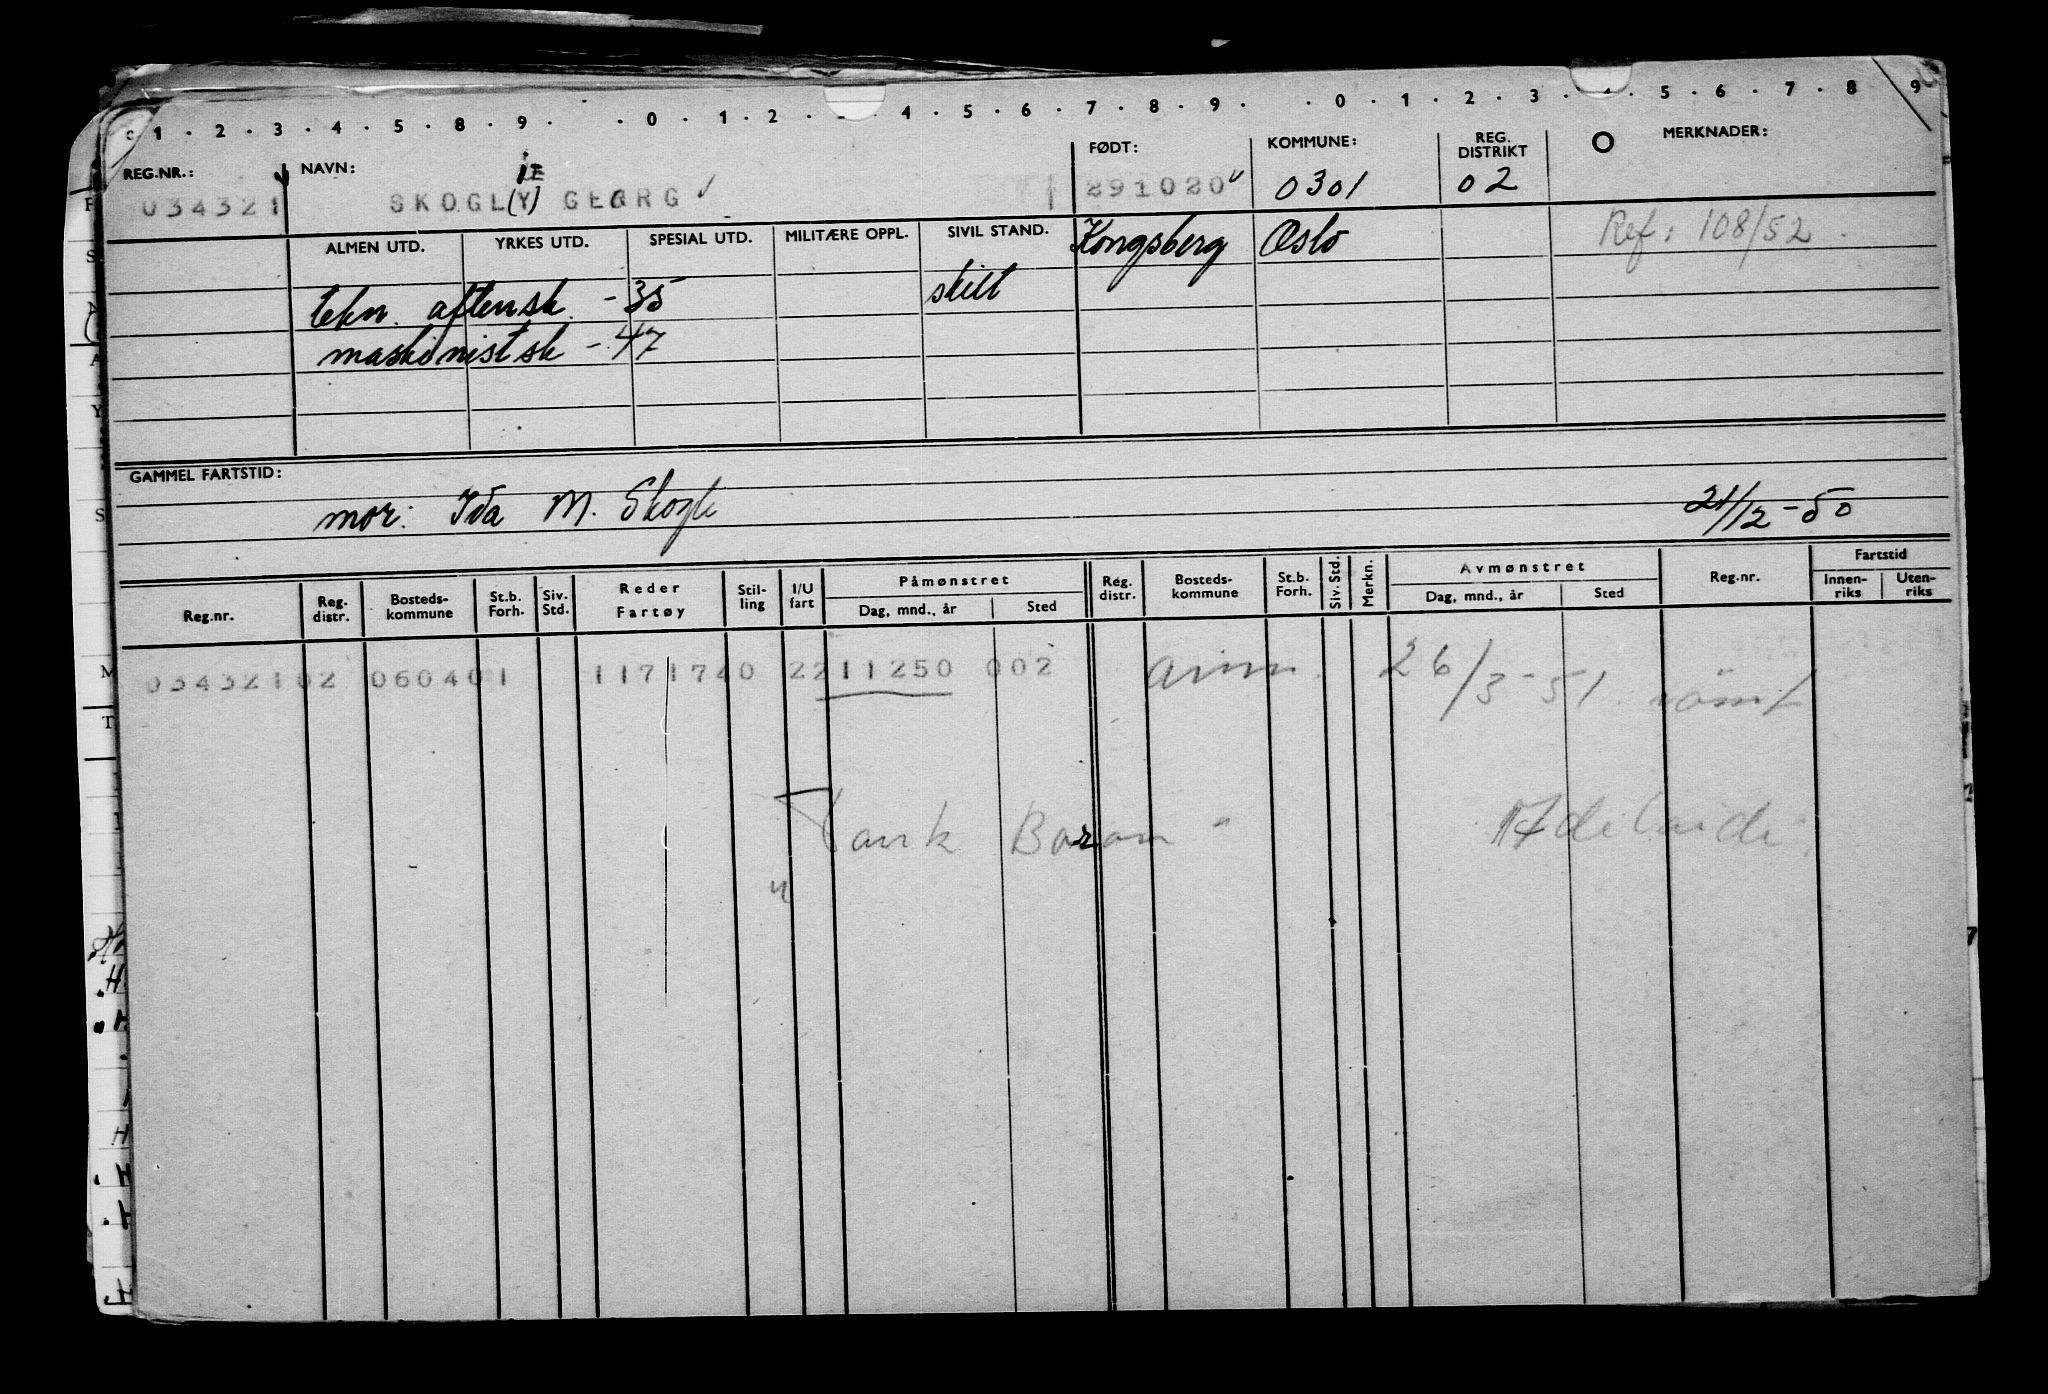 1 . 2 . 3 . 4 . 5 . 8 . 9 . . 0 . 1 . 2 . 4 . 5 . 6 . 7 . 8 . 9 . . 0 . 1 . 2 . 3 . 4 . 5 . 6 . 7 . 8 9
REG.NR.: NAVN: FØDT: KOMMUNE: REG. DISTRIKT MERKNADER:
IE
034321 SKOGL(Y) GEORG ✓ 291020 0301 02
ALMEN UTD. YRKES UTD. SPESIAL UTD. MILITÆRE OPPL. SIVIL STAND. Kongsberg Oslo Ref: 108/52
tekn. aftensk. - 35 skilt
maskinistsk - 47
GAMMEL FARTSTID:
mor: Ida M. Skogli 21/12-50
Reg.nr. Reg. distr. Bosteds-kommune St.b. Forh. Siv. Std. Reder Fartøy Stil-ling I/U fart Påmønstret Dag, mnd., år Sted Reg. distr. Bosteds-kommune St.b. Forh. Siv. Std. Merkn. Avmønstret Dag, mnd., år Sted Reg.nr. Fartstid Innen-riks Uten-riks
034321 02 0604 01 1171740 22 11250 002 26/3-51 rømt
Tank Boron "